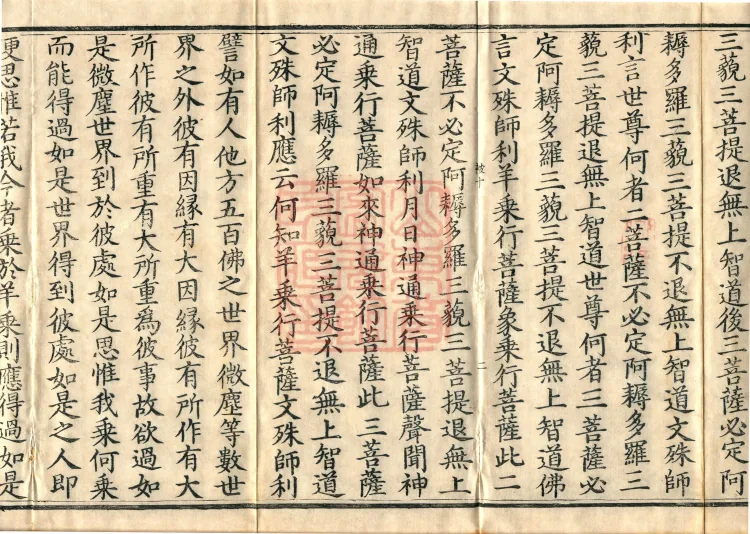 三藐三菩提退無上智道後三菩薩必定阿
耨多羅三藐三菩提不退無上智道文殊師
利言世尊何者二菩薩不必定阿耨多羅三
藐三菩提退無上智道世尊何者三菩薩必
定阿耨多羅三藐三菩提不退無上智道佛
言文殊師利羊乘行菩薩象乘行菩薩此二
菩薩不必定阿耨多羅三藐三菩提退無上
智道文殊師利月日神通乘行菩薩聲聞神
通乘行菩薩如來神通乘行菩薩此三菩薩
必定阿耨多羅三藐三菩提不退無上智道
文殊師利應云何知羊乘行菩薩文殊師利
譬如有人他方五百佛之世界微塵等數世
界之外彼有因緣有大因緣彼有所作有大
所作彼有所重有大所重為彼事故欲過如
是微塵世界到於彼處如是思惟我乘何乘
而能得過如是世界得到彼處如是之人即
更思惟若我今者乘於羊乘則應得過如是